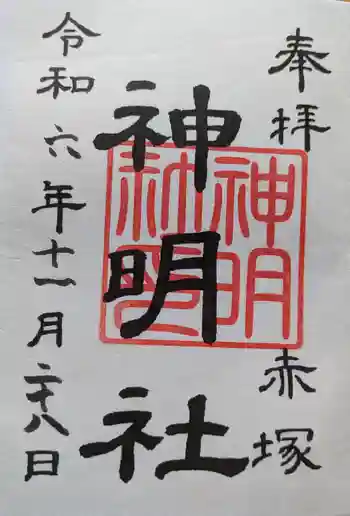 奉拝 赤塚
神明社
令和六年十一月二十八日
神明
社印